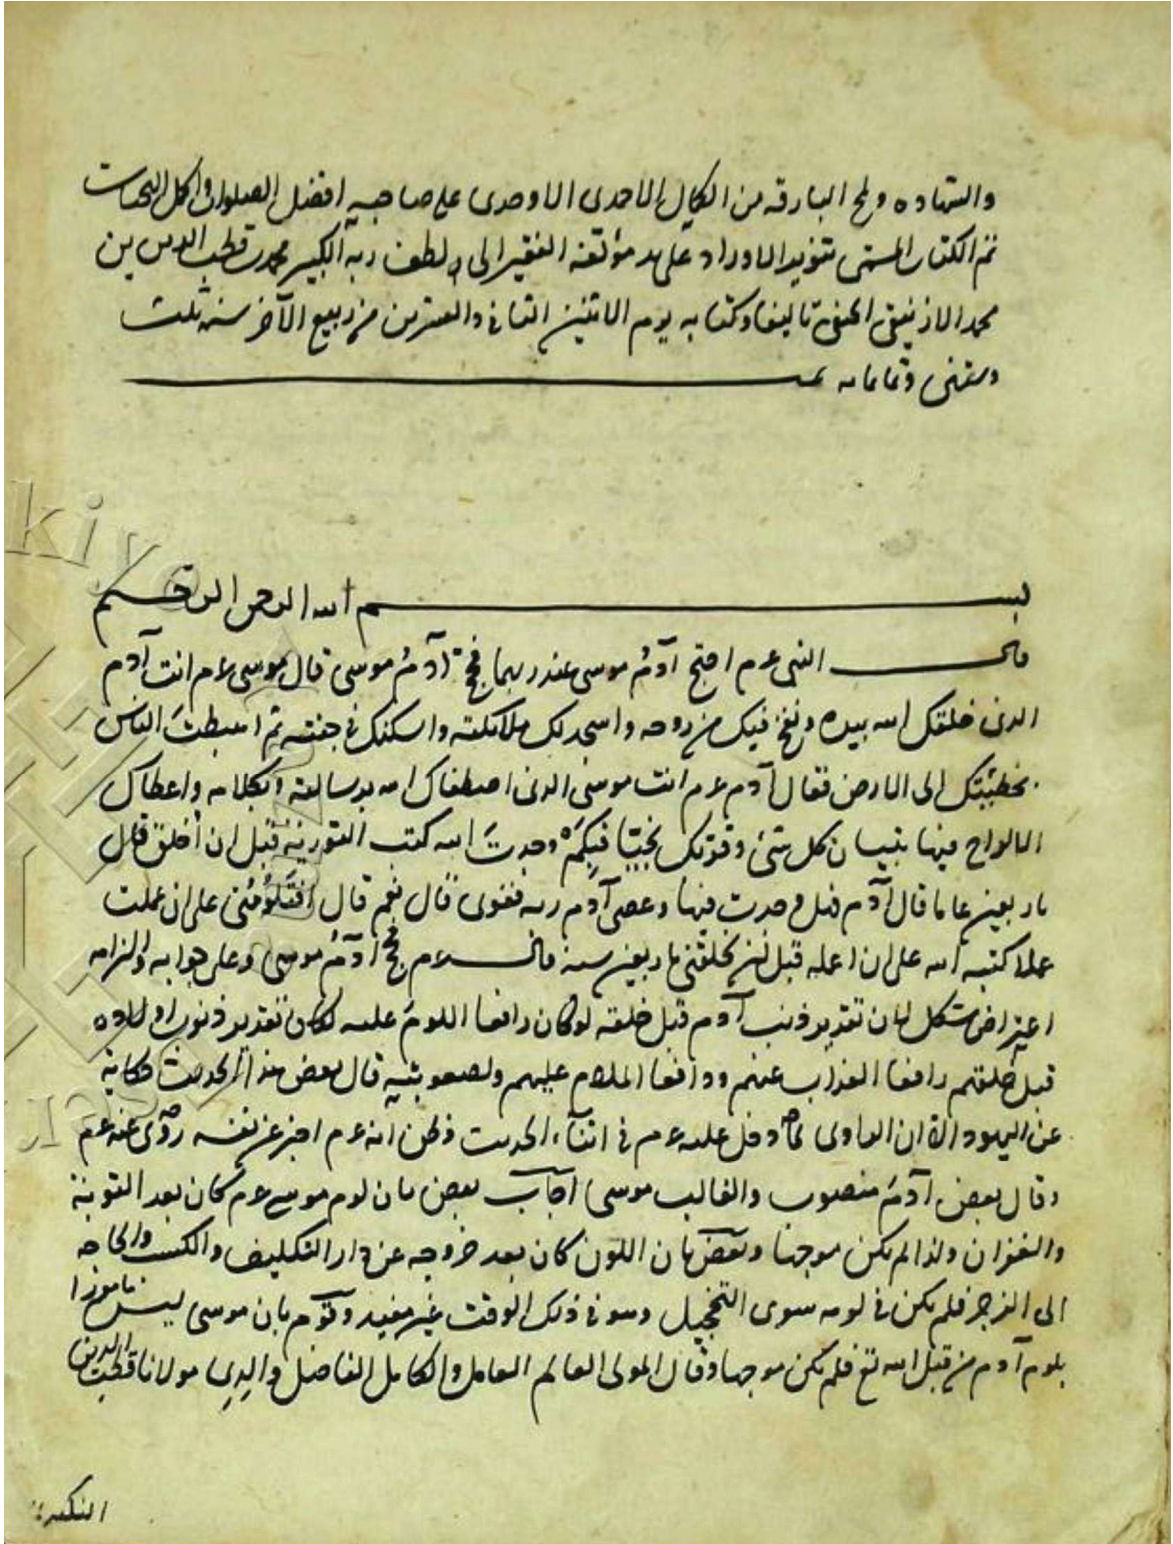 والشهاده ولمح البارقه من الكمال الاحدى الاوحدى على صاحبه افضل الصلوات واكمل التحيات
تم الكتاب المسمى بتنوير الاوراد على يد مؤلفه الفقير الى لطف ربه الكبير محمد بن قطب الدين بن
محمد الازنيقى الحنفى تاليفا وكتابه يوم الاثنين الثانى والعشرين من ربيع الآخر سنه ثلث
وستين وثمانمايه تمت
بسم الله الرحمن الرحيم
قال النبى عم احتج آدمُ موسى عند ربهما فحج آدمُ موسى قال موسى عم انت آدم
الذى خلقك الله بيده ونفخ فيك من روحه واسجد لك ملائكته واسكنك فى جنته ثم اهبطتَ الناس
بخطيئتك الى الارض فقال آدم عم انت موسى الذى اصطفاك الله برسالته وبكلامه واعطاك
الالواح فيها تبيان كل شئ وقربك نجيّا فبِكَمْ وجدتَ الله كتب التورية قبل ان أخلق قال
باربعين عاما قال آدم فهل وجدت فيها وعصى آدم ربه فغوى قال نعم قال افتَلُومُنى على ان عملت
عملا كتبه الله على ان اعمله قبل ان يخلقنى باربعين سنه قال عم فحج آدمُ موسى وعلى جوابه والزامه
اعتراض مشكل لان تقدير ذنب آدم قبل خلقه لو كان رافعا اللوم عليه لكان تقدير ذنوب اولاده
قبل خلقهم رافعا العذاب عنهم ودافعا الملام عليهم ولصعوبته قال بعض هذا الحديث حكاية
عن اليهود الا ان الراوى لما دخل عليه عم فى اثناء الحديث فظن انه عم اخبر عن نفسه روى عنه عم
وقال بعض آدمَ منصوب والغالب موسى اجاب بعض بان لوم موسى عم كان بعد التوبة
والغفران ولذا لم يكن موجها وبعض بان اللوم كان بعد خروجه عن دار التكليف والكسب والحاجه
الى الزجر فلم يكن فى لومه سوى التخجيل وهو فى ذلك الوقت غير مفيد وقوم بان موسى ليس مامورا
بلوم آدم من قبل الله تع فلم يكن موجها وقال المولى العالم العامل والكامل الفاضل والدى مولانا قطب الدين